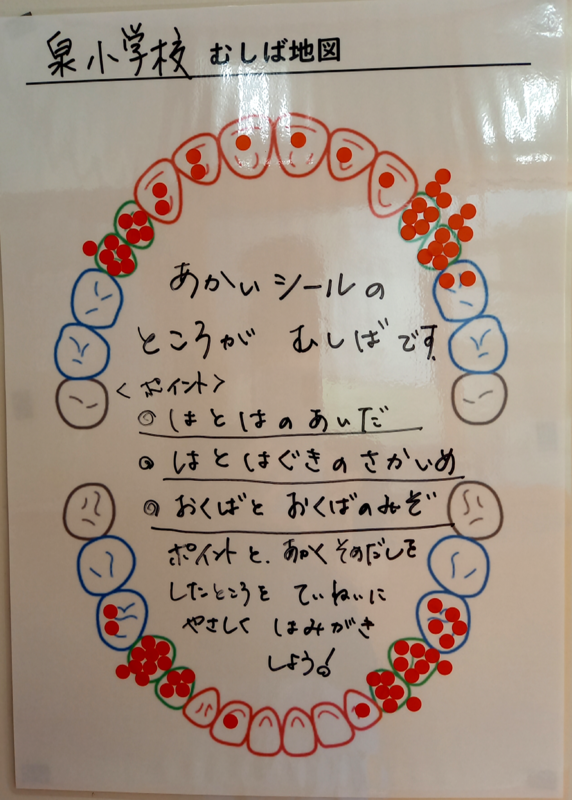 泉小学校 むしば地図
あかいシールの
ところが むしばです
<ポイント>
◎はとはのあいだ
◎はとはぐきのさかいめ
◎おくばと おくばのみぞ
ポイントと、あかくそのだしを
したところを ていねいに
やさしく はみがき
しよう!